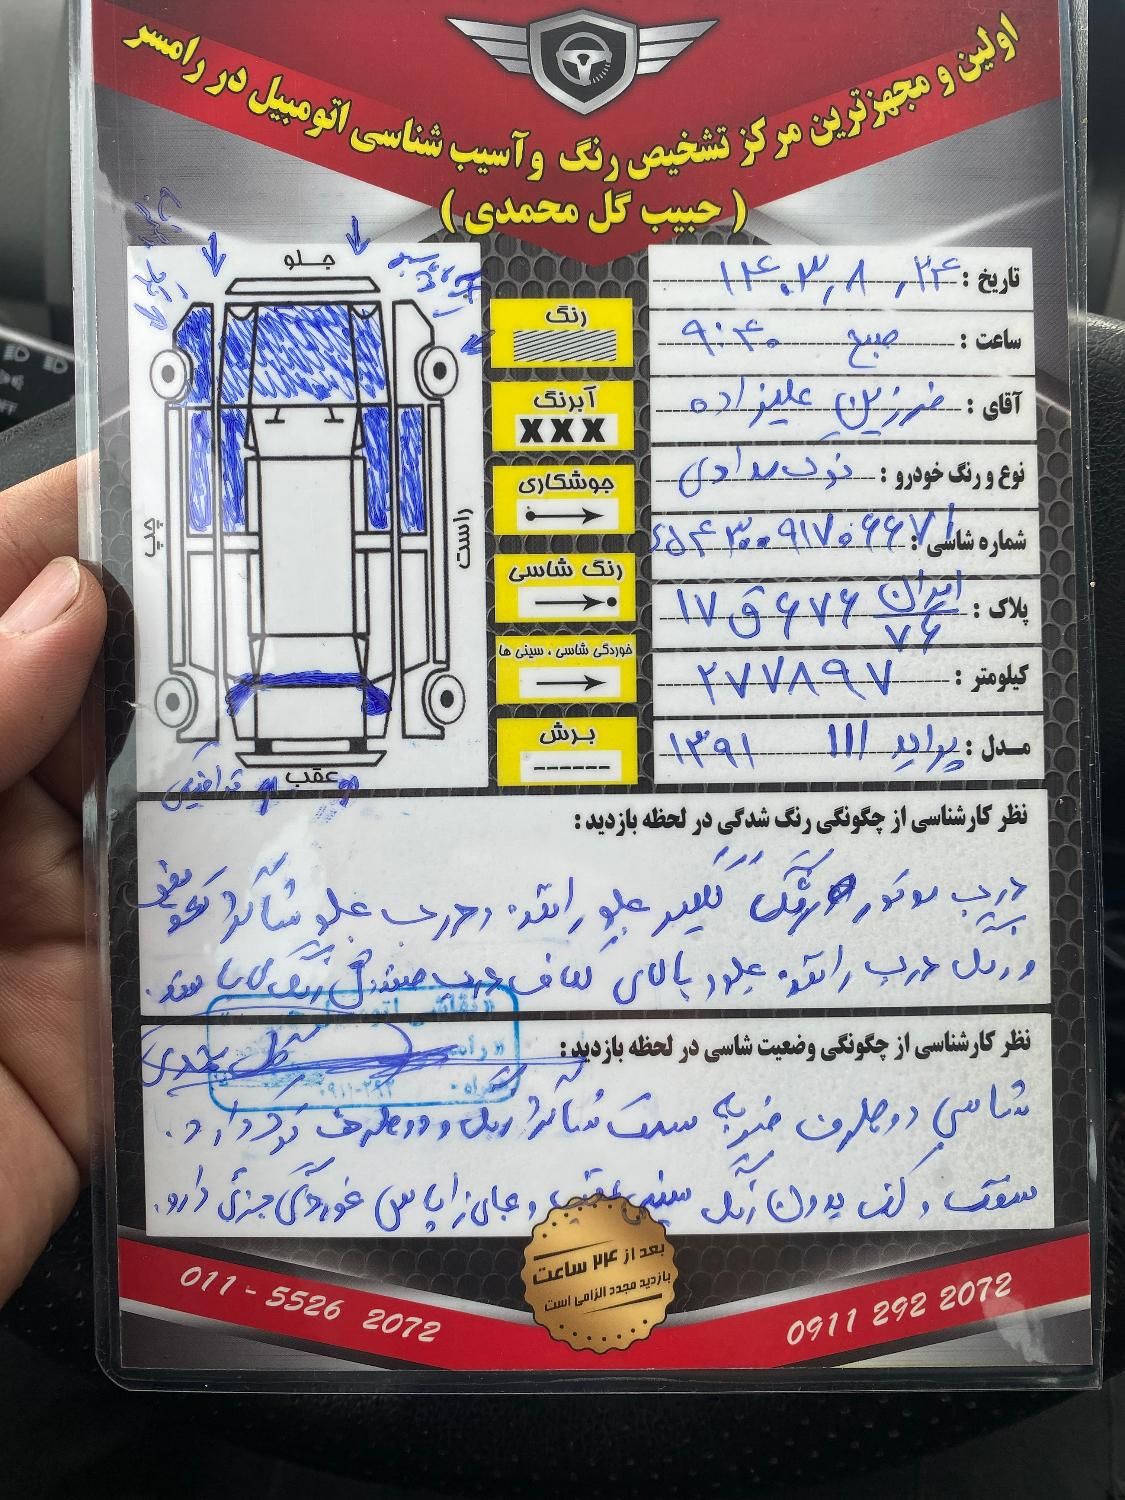 اولین و مجهزترین مرکز تشخیص رنگ و آسیب شناسی اتومبیل در رامسر
( حبیب گل محمدی )
تاریخ : ۱۴۰۳٫۸٫۲۴
ساعت : ۹:۴۰ صبح
آقای : فرزین علیزاده
نوع و رنگ خودرو : نوک مدادی
شماره شاسی :
پلاک : ایران ۷۶ ۶۷۶ ق ۱۷
کیلومتر : ۲۷۷۸۹۷
مدل : پراید 111 ۱۳۹۱
جلو
چپ
راست
عقب
رنگ
آبرنگ
XXX
جوشکاری
رنگ شاسی
خوردگی شاسی ، سینی ها
برش
نظر کارشناسی از چگونگی رنگ شدگی در لحظه بازدید :
درب موتور گلگیر جلو راننده و درب جلو شاگرد
درب راننده جلو و بالای درب صندوق رنگ
نظر کارشناسی از چگونگی وضعیت شاسی در لحظه بازدید :
شاسی دو طرف ضربه سمت شاگرد رنگ و دو طرف دارد .
سقف و کف بدون رنگ سینی عقب و جای زاپاس خوردگی جزئی دارد .
بعد از ۲۴ ساعت
بازدید مجدد الزامی است
011 - 5526 2072
0911 292 2072